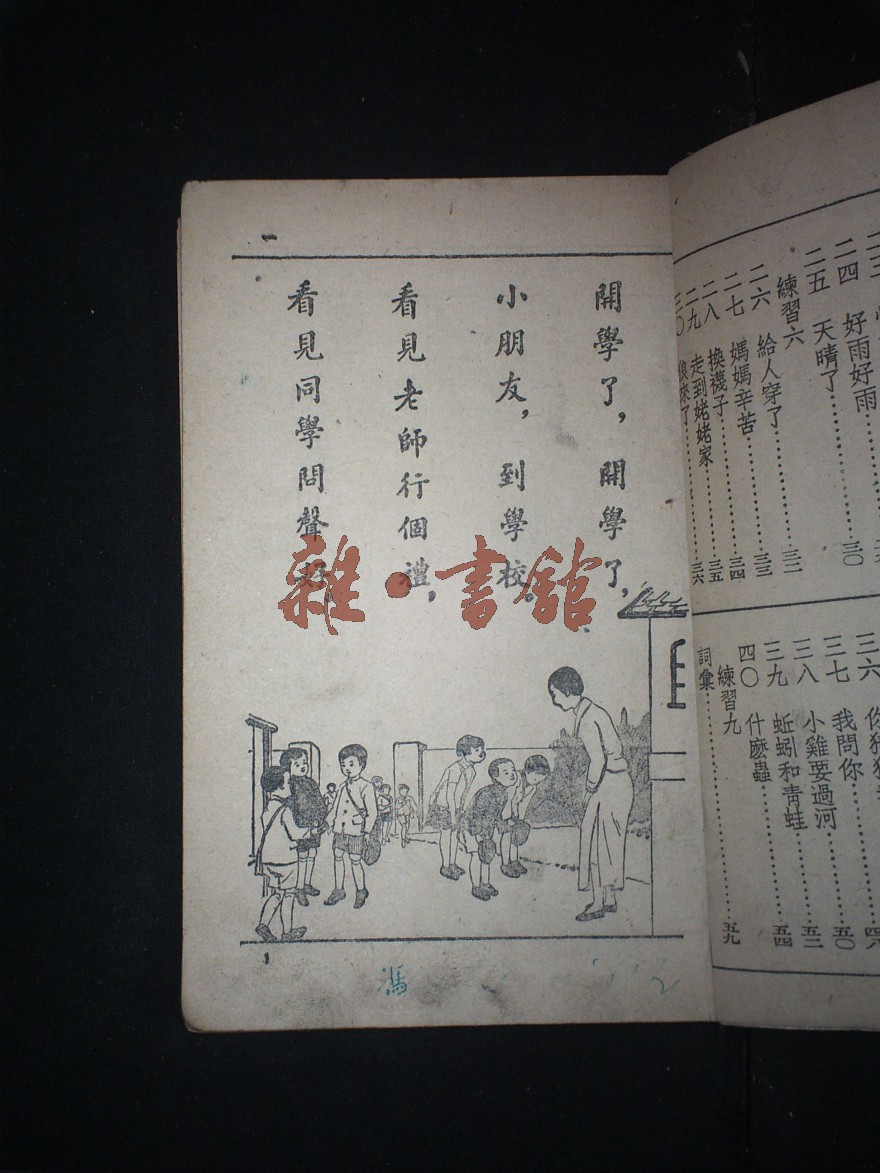 二四 好雨好雨
二五 天晴了……三〇
練習六
二六 給人穿了……三二
二七 媽媽辛苦……三三
二八 換襪子……三四
二九 走到姥姥家……三五
三〇 ……三六
三六
三七 我問你……四八
三八 小雞要過河……五〇
三九 蚯蚓和青蛙……五二
四〇 什麽蟲……五四
練習九
詞彙……五九
一
開學了，開學了，
小朋友，到學校。
看見老師行個禮，
看見同學問聲好。
雜·書館
1